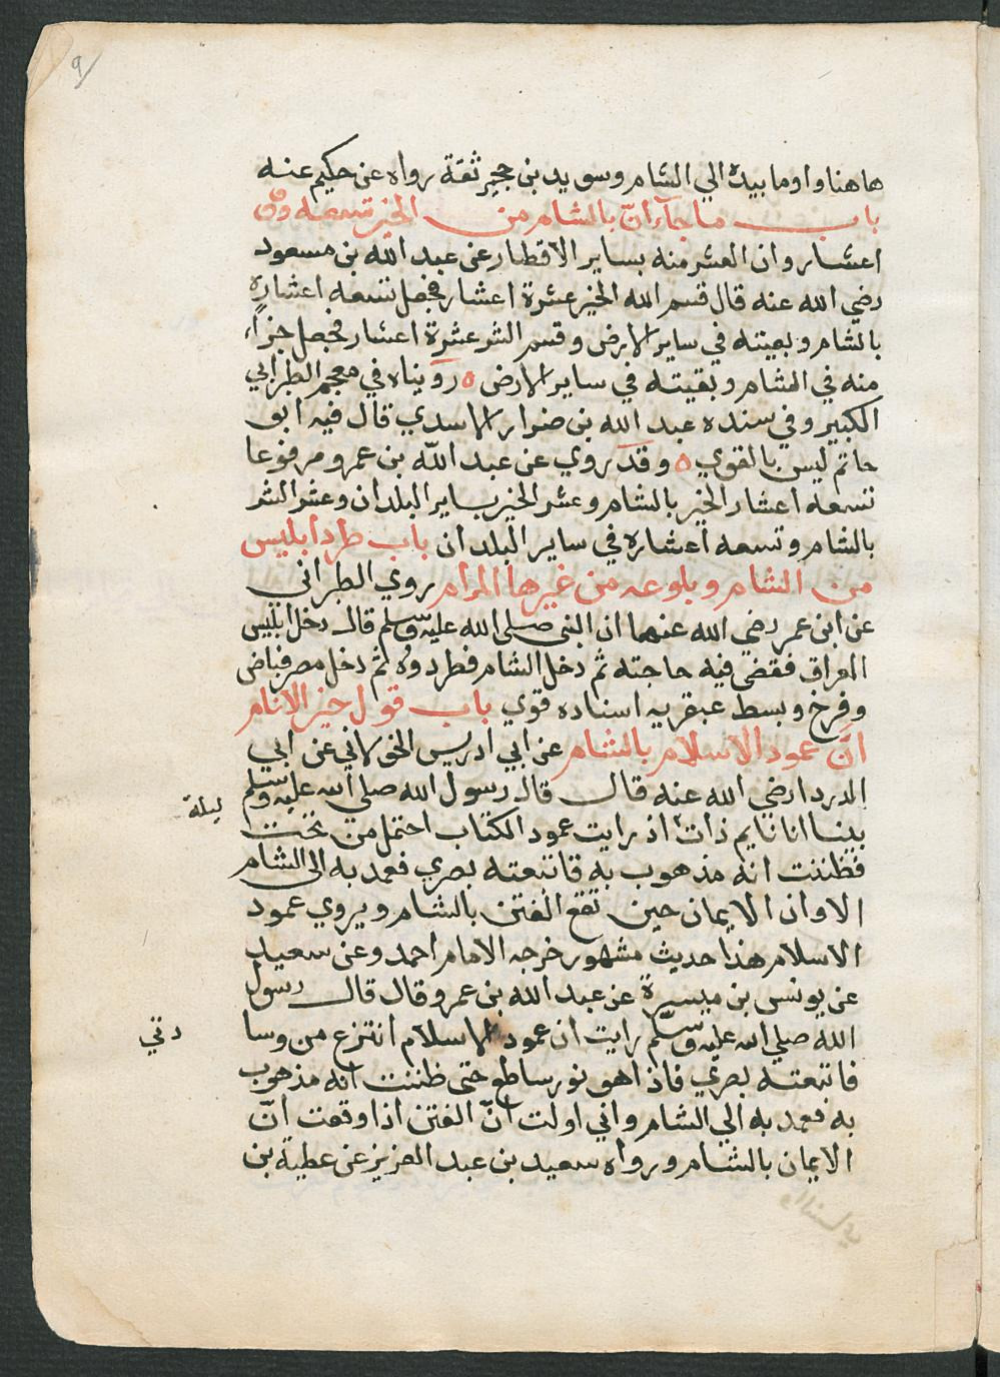 ٩
هاهنا واوما بيده الي الشام وسويد بن حجير ثقة رواه عن حكيم عنه
باب ما جآء انّ بالشام من الخير تسعه
اعشار وان العشر منه بساير الاقطار عن عبد الله بن مسعود
رضي الله عنه قال قسم الله الخير عشرة اعشار فجعل تسعه اعشاره
بالشام وبقيته في ساير الارض وقسم الشر عشرة اعشار فجعل جزأً
منه في الشام وبقيته في ساير الارض ه رويناه في معجم الطبراني
الكبير وفي سنده عبد الله بن ضرار الاسدي قال فيه ابو
حاتم ليس بالقوي ه وقد روي عن عبد اللّه بن عمرو مرفوعا
تسعه اعشار الخير بالشام وعشر الخير بساير البلدان وعشر الشر
بالشام وتسعه اعشاره في ساير البلدان باب طرد ابليس
من الشام وبلوغه من غيرها المرام روي الطبراني
عن ابن عمر رضي الله عنهما ان النبي صلى الله عليه وسلم قال دخل ابليس
العراق فقضى فيه حاجته ثم دخل الشام فطردوه ثم دخل مصر فباض
وفرخ وبسط عبقريه اسناده قوي باب قول خير الانام
انّ عمود الاسلام بالشام عن ابي ادريس الخولاني عن ابي
الدردا رضي الله عنه قال قال رسول الله صلى الله عليه وسلم
بينا انا نايم ذات اذ رايت عمود الكتاب احتمل من تحت
ليلة
فظننت انه مذهوب به فاتبعته بصري فعمد به الى الشام
الا وان الايمان حين تقع الفتن بالشام ويروي عمود
الاسلام هذا حديث مشهور خرجه الامام احمد وعن سعيد
عن يونس بن ميسرة عن عبد الله بن عمرو قال قال رسول
الله صلي الله عليه وسلّم رايت ان عمود الاسلام انتزع من وسا
دتي
فاتبعته بصري فاذا هو نور ساطع حتى ظننت انه مذهوب
به فعمد به الي الشام واني اولت انّ الفتن اذا وقعت انّ
الايمان بالشام ورواه سعيد بن عبد العزيز عن عطية بن